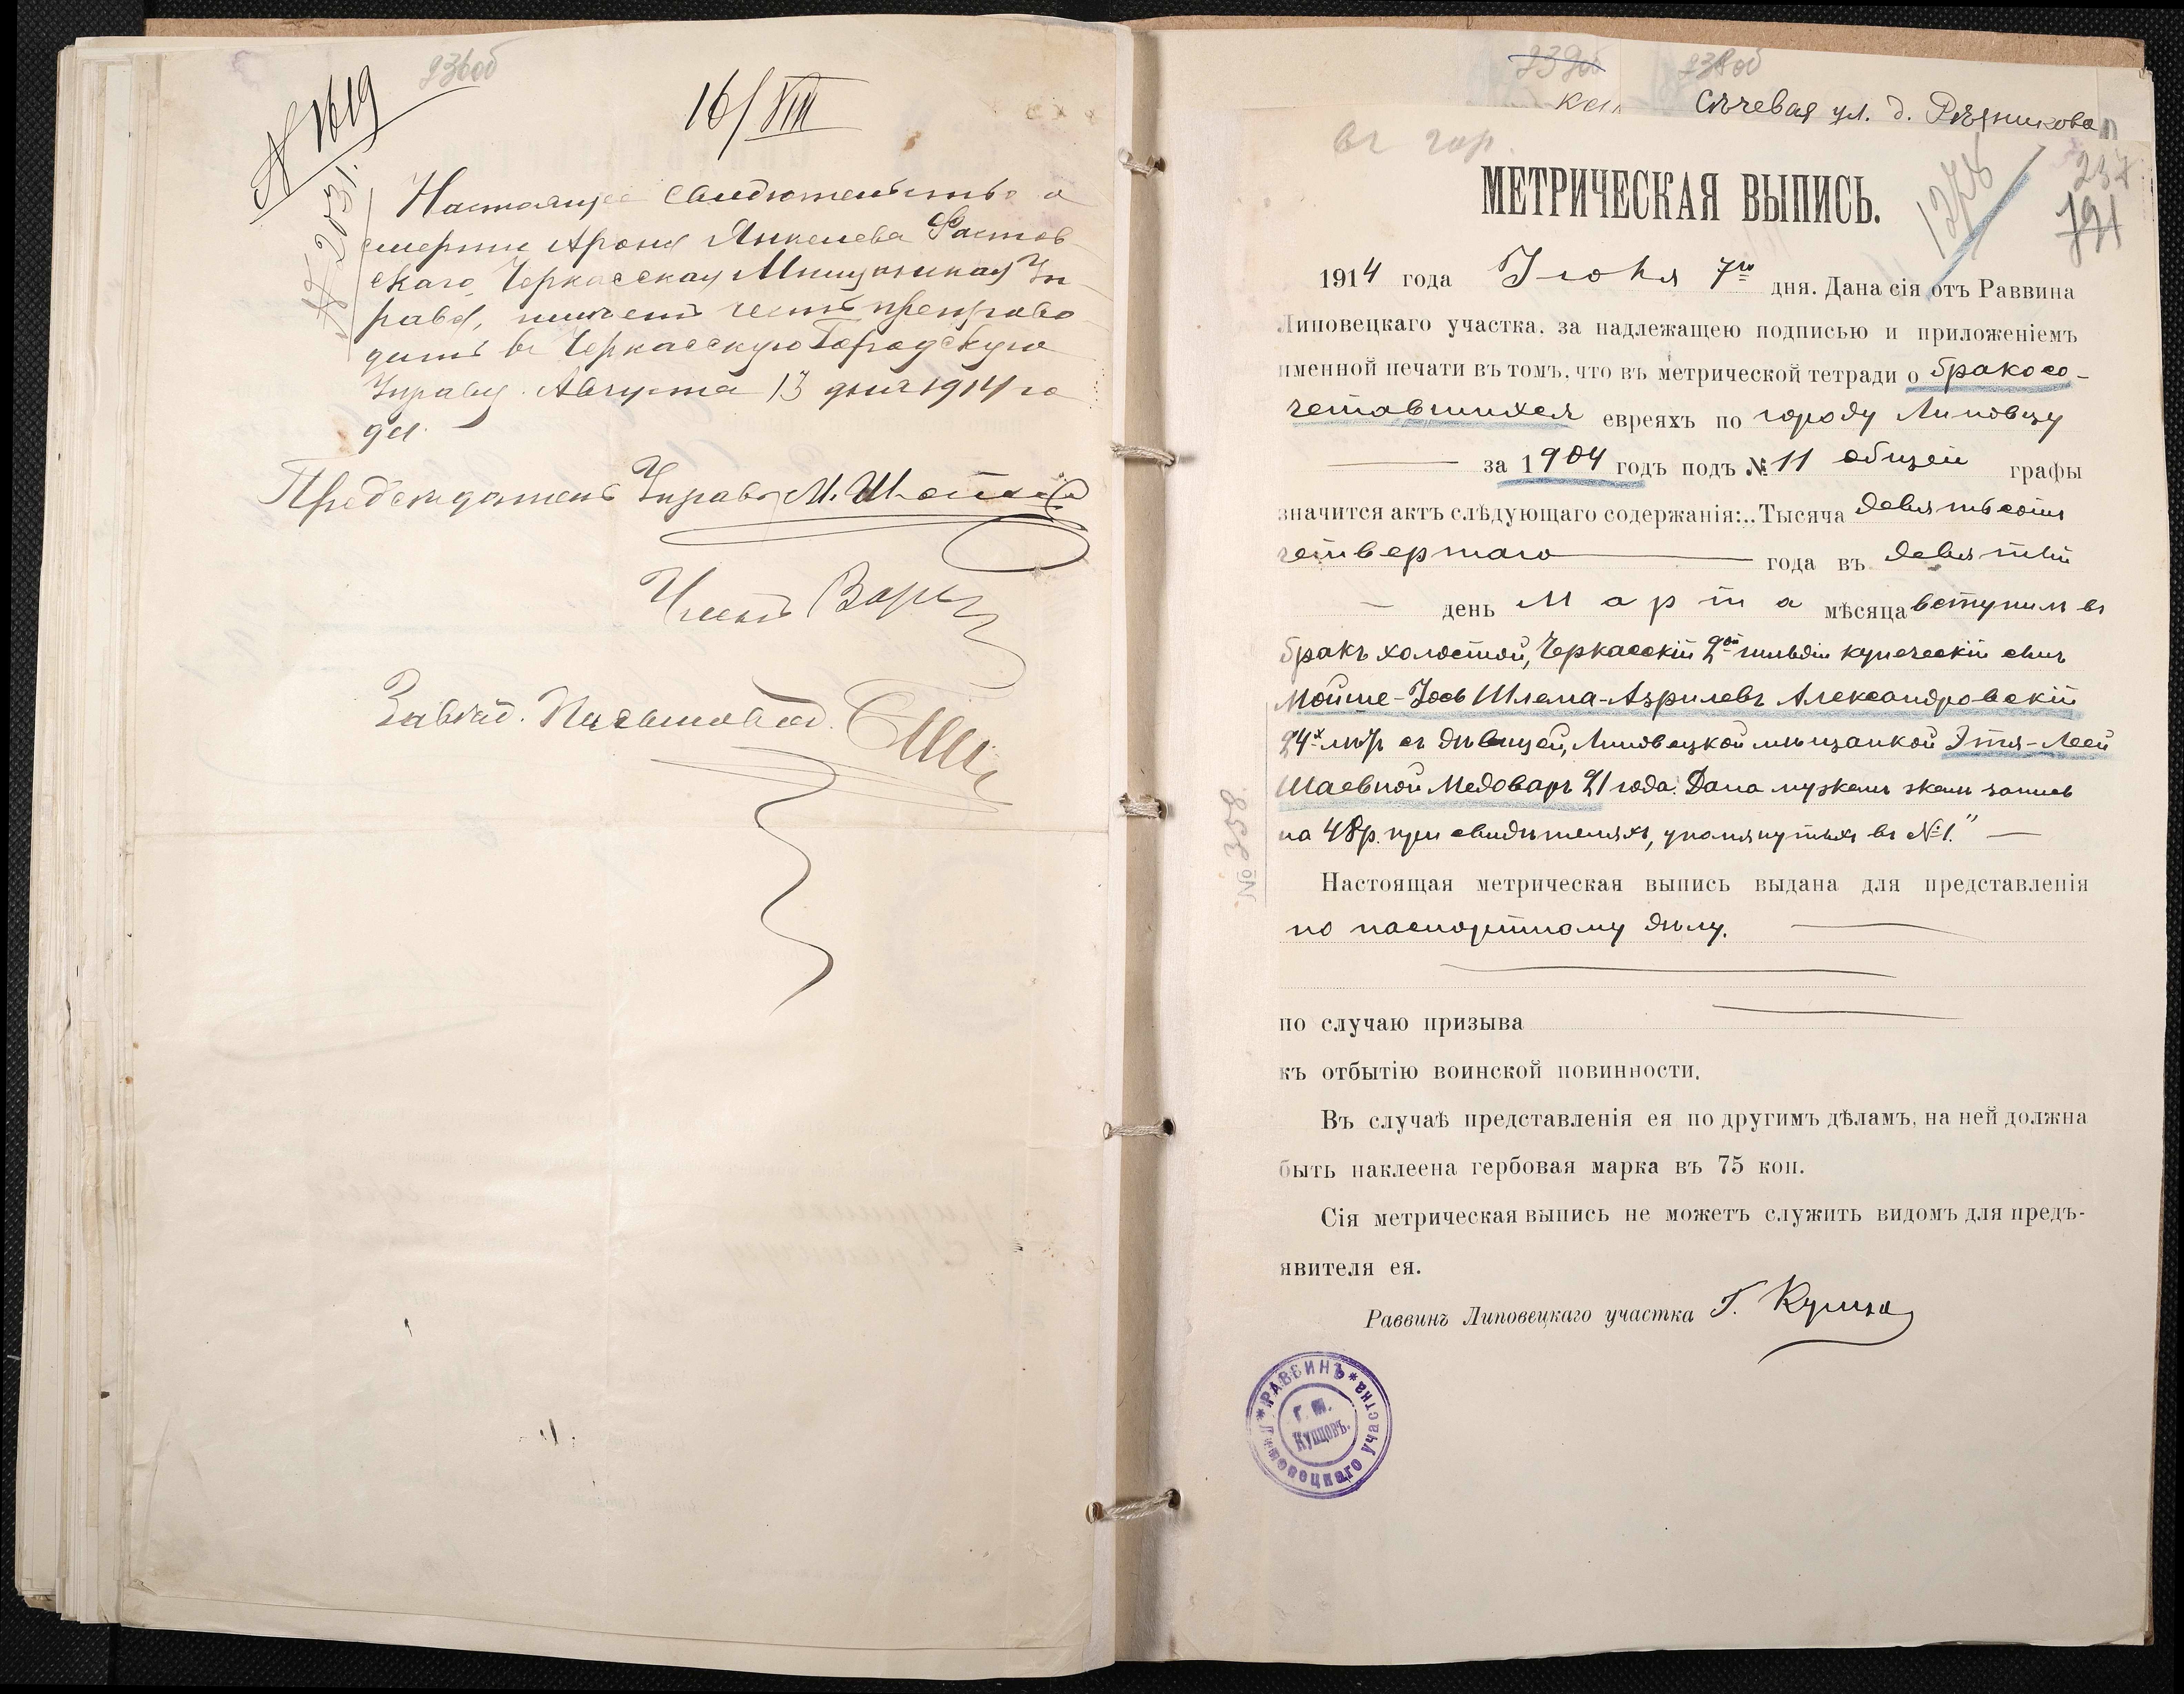 № 1619
236об
16/VIII
№ 2031.
Настоящее свидѣтельство о
смерти Арона Янкелева Фастов-
скаго, Черкасская Мѣщанская Уп-
рава, имѣетъ честь препрово-
дить въ Черкасскую Городскую
Управу. Августа 13 дня 1914 го-
да.
Предсѣдатель Управы М.
Членъ
Завѣд.
239об 238об
Сѣчевая ул. д. Рѣзникова
въ гор.
237
791
1278
МЕТРИЧЕСКАЯ ВЫПИСЬ.
1914 года Іюня 7го дня. Дана сія отъ Раввина
Липовецкаго участка, за надлежащею подписью и приложеніемъ
именной печати въ томъ, что въ метрической тетради о бракосо-
четавшихся евреяхъ по городу Липовцу
за 1904 годъ подъ № 11 общей графы
значится актъ слѣдующаго содержанія:.. Тысяча девятьсотъ
четвертаго года въ девятый
день Марта мѣсяца вступилъ въ
бракъ холостой, Черкасскій 2ой гильдіи купеческій сынъ
Мойше-Іосъ Шлема-Азрилевъ Александровскій
24х лѣтъ съ дѣвицей, Липовецкой мѣщанкой Этя-Леей
Шаевной Медоваръ 21 года. Дана мужемъ женѣ запись
на 48р. при свидѣтеляхъ, упомянутыхъ въ №1."
№ 358.
Настоящая метрическая выпись выдана для представленія
по паспортному дѣлу.
по случаю призыва
къ отбытію воинской повинности.
Въ случаѣ представленія ея по другимъ дѣламъ, на ней должна
быть наклеена гербовая марка въ 75 коп.
Сія метрическая выпись не можетъ служить видомъ для предъ-
явителя ея.
Раввинъ Липовецкаго участка Г. Купцов
*РАВВИНЪ* Липовецкаго участка
Г. Ш.
Купцовъ.